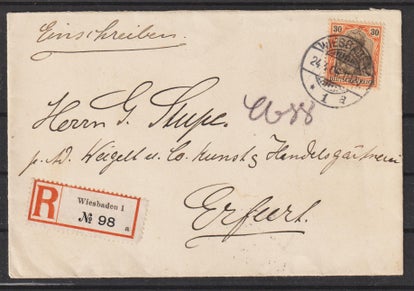 Einschreiben.
30 30
WIESBADEN
24.
* 1 a
Herrn G. Stupe.
p. Ad. Weigelt u. Co. Kunst & Handelsgärtnerei
Erfurt.
R
Wiesbaden 1
№ 98
a